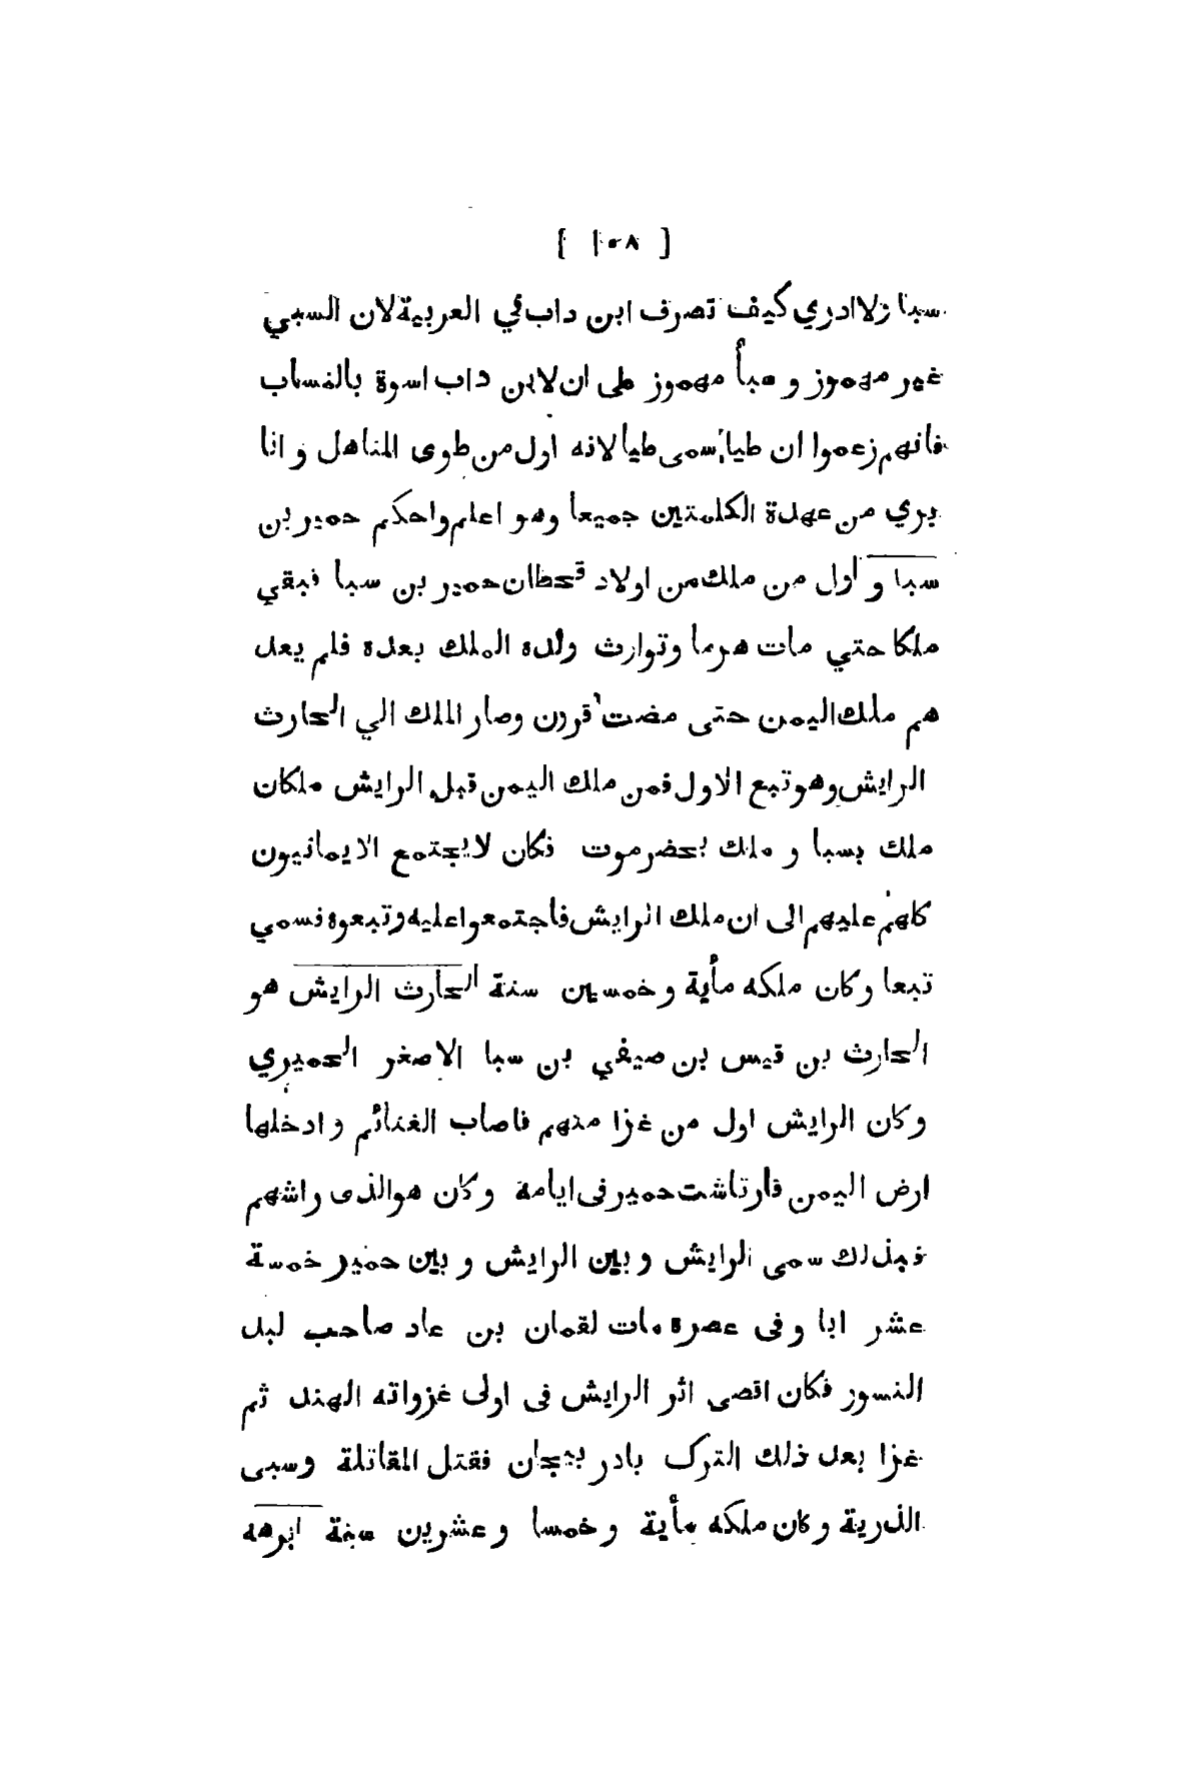 [ ١٠٨ ]
سبا ولا ادري كيف تصرف ابن داب في العربية لان السبي
غير مهموز و سبأ مهموز على ان لابن داب اسوة بالنساب
فانهم زعموا ان طيا سمى طيا لانه اول من طوى المناهل و انا
بري من عهدة الكلمتين جميعا وهو اعلم واحكم حمير بن
سبا و اول من ملك من اولاد قحطان حمير بن سبا فبقي
ملكا حتي مات هرما وتوارث ولده الملك بعده فلم يعد
هم ملك اليمن حتى مضت قرون وصار الملك الي الحارث
الرايش وهو تبع الاول فمن ملك اليمن قبل الرايش ملكان
ملك بسبا و ملك بحضرموت فكان لا يجتمع الايمانيون
كلهم عليهم الى ان ملك الرايش فاجتمعوا عليه وتبعوه فسمي
تبعا وكان ملكه مأية وخمسين سنة الحارث الرايش هو
الحارث بن قيس بن صيفي بن سبا الاصغر الحميري
وكان الرايش اول من غزا منهم فاصاب الغنائم و ادخلها
ارض اليمن فارتاشت حمير فى ايامه وكان هوالذى راشهم
فبذلك سمى الرايش و بين الرايش و بين حمير خمسة
عشر ابا و فى عصره مات لقمان بن عاد صاحب لبد
النسور فكان اقصى اثر الرايش فى اولى غزواته الهند ثم
غزا بعد ذلك الترك باذر بيجان فقتل المقاتلة وسبى
الذرية و كان ملكه مأية و خمسا و عشرين سنة ابرهه